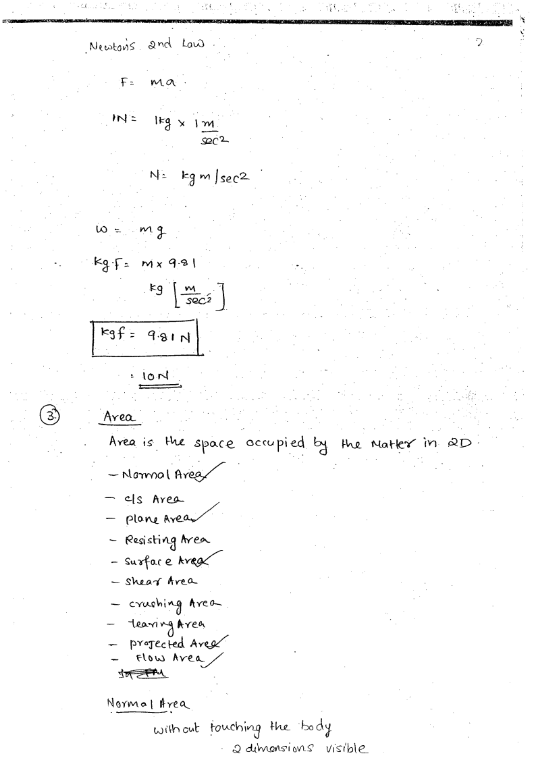 Newton's 2nd Law.
F = ma
1N = 1kg x 1 m
sec2
N = kg m/sec2
W = mg
kg.f = m x 9.81
kg [ m
sec2 ]
kgf = 9.81 N
= 10N
3 Area
Area is the space occupied by the Matter in 2D.
- Normal Area
- c/s Area
- plane Area
- Resisting Area
- Surface Area
- shear Area
- crushing Area
- tearing Area
- projected Area
- Flow Area
Normal Area
without touching the body
2 dimensions visible